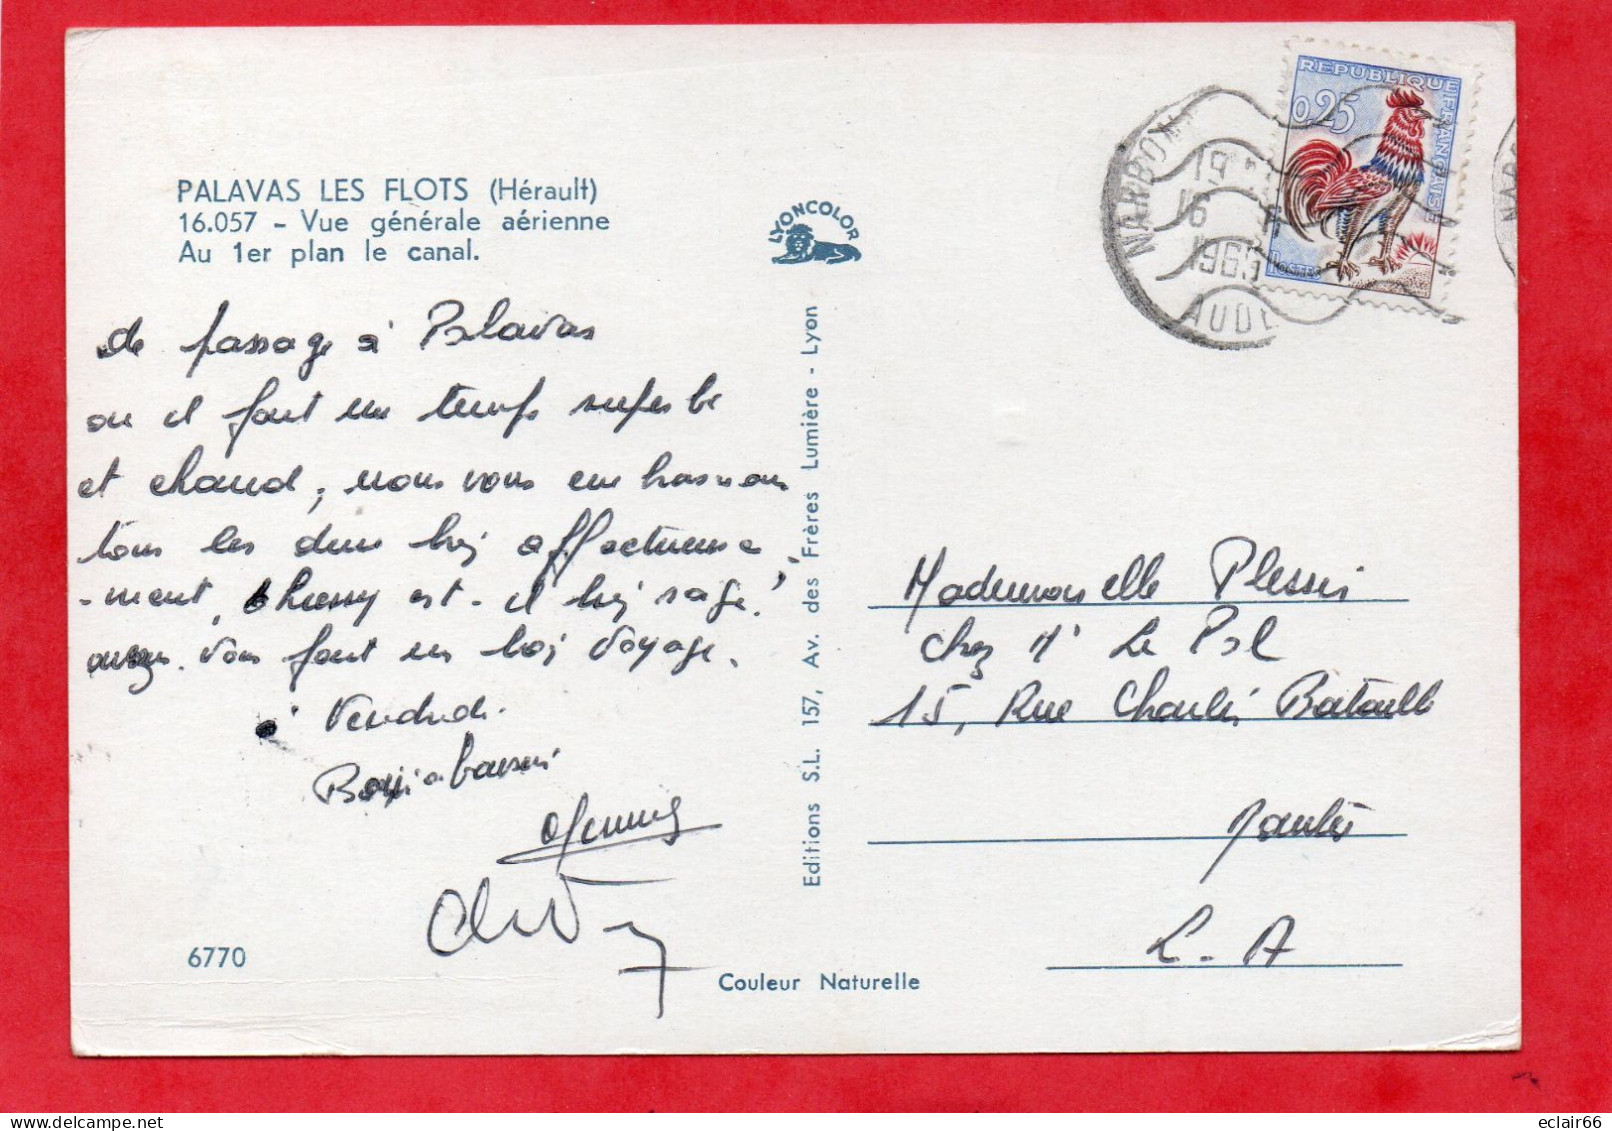 PALAVAS LES FLOTS (Hérault)
16.057 - Vue générale aérienne
Au 1er plan le canal.
de passage à Palavas
ou il fait un temps superbe
et chaud, nous vous embrassons
tous les deux bien affectueuse
-ment, Thierry est-il bien sage?
avez vous fait un bon voyage.
Vendredi.
6770
LYONCOLOR
Editions S.L. 157, Av. des Frères Lumière - Lyon
Couleur Naturelle
REPUBLIQUE FRANÇAISE
0,25
POSTES
19
16
1965
AUDE
Mademoiselle Plessis
Chez Mr Le Pal
15, Rue Charles Bataille
Nantes
L.-A
eclair66